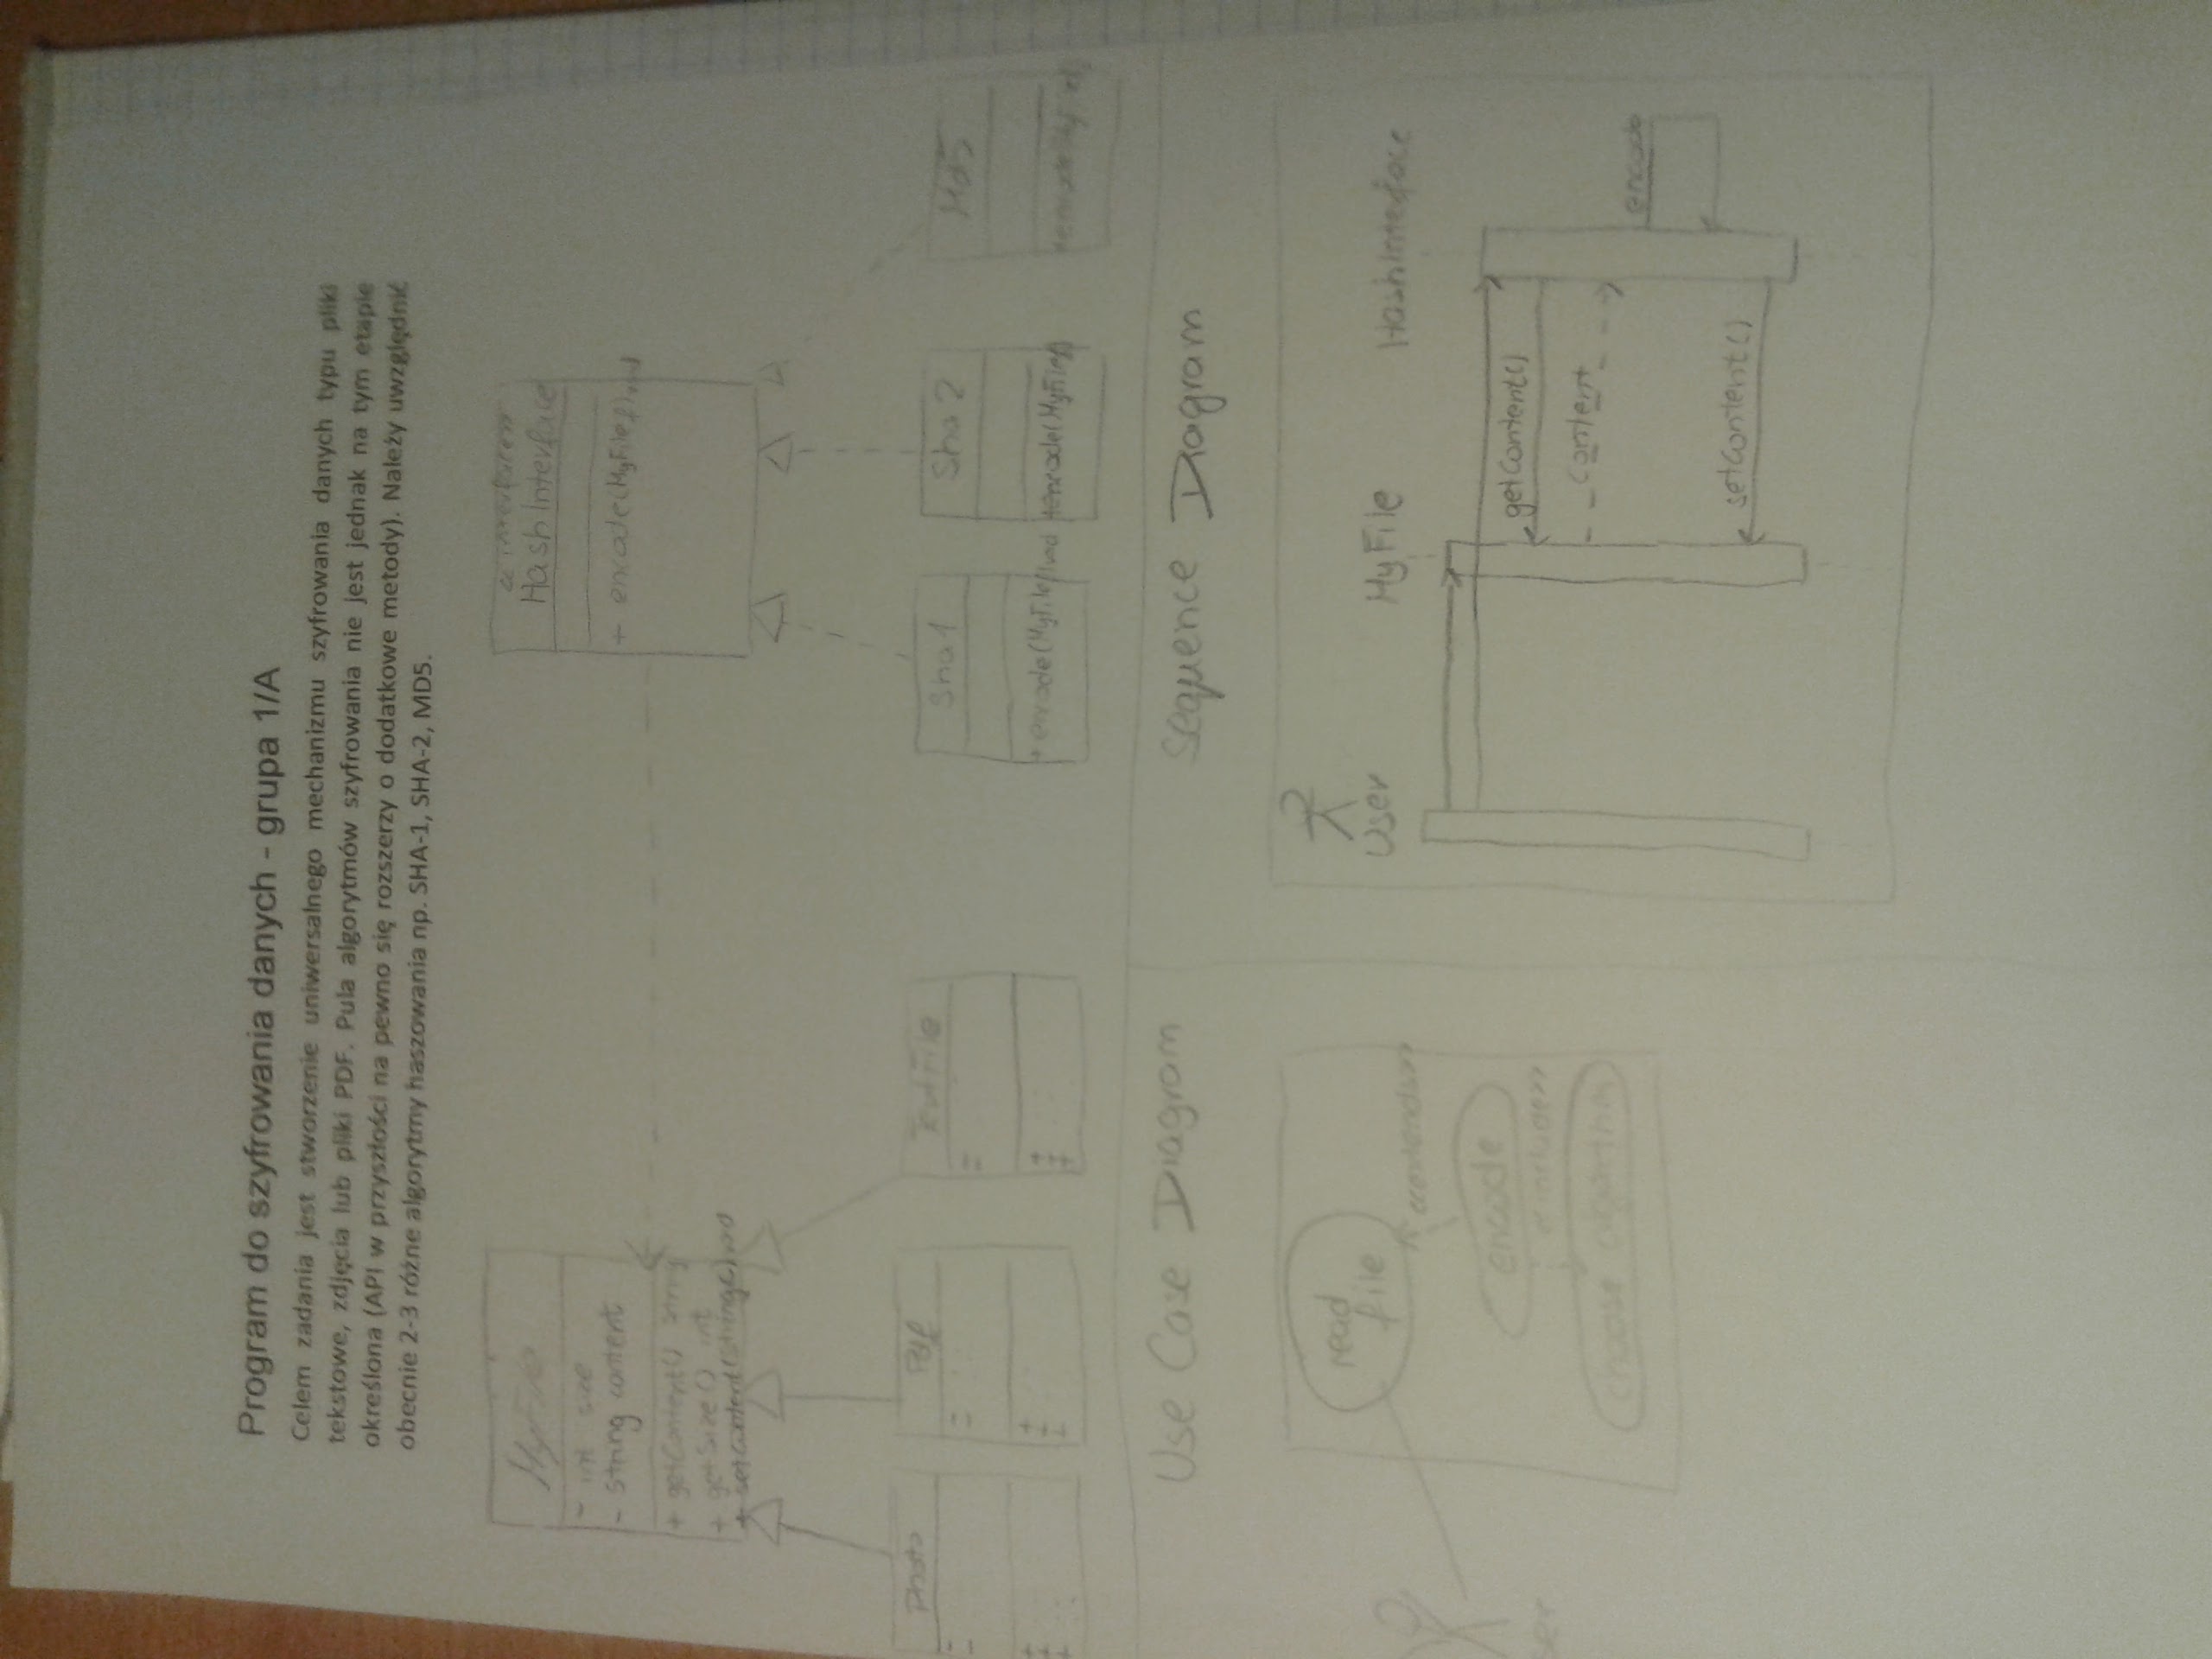 Program do szyfrowania danych - grupa 1/A
Celem zadania jest stworzenie uniwersalnego mechanizmu szyfrowania danych typu pliki
tekstowe, zdjęcia lub pliki PDF. Pula algorytmów szyfrowania nie jest jednak na tym etapie
określona (API w przyszłości na pewno się rozszerzy o dodatkowe metody). Należy uwzględnić
obecnie 2-3 różne algorytmy haszowania np. SHA-1, SHA-2, MD5.
MyFile
- int size
- string content
+ getContent() string
+ getSize() int
+ setContent(string c) void
<<interface>>
HashInterface
+ encode(MyFile f) void
Photo
Pdf
TextFile
Sha1
+ encode(MyFile f) void
Sha2
+ encode(MyFile f)
Md5
+ encode(MyFile f)
Use Case Diagram
read
file
<<extends>>
encode
<<include>>
choose algorithm
Sequence Diagram
User
MyFile
HashInterface
getContent()
content
encode
setContent()